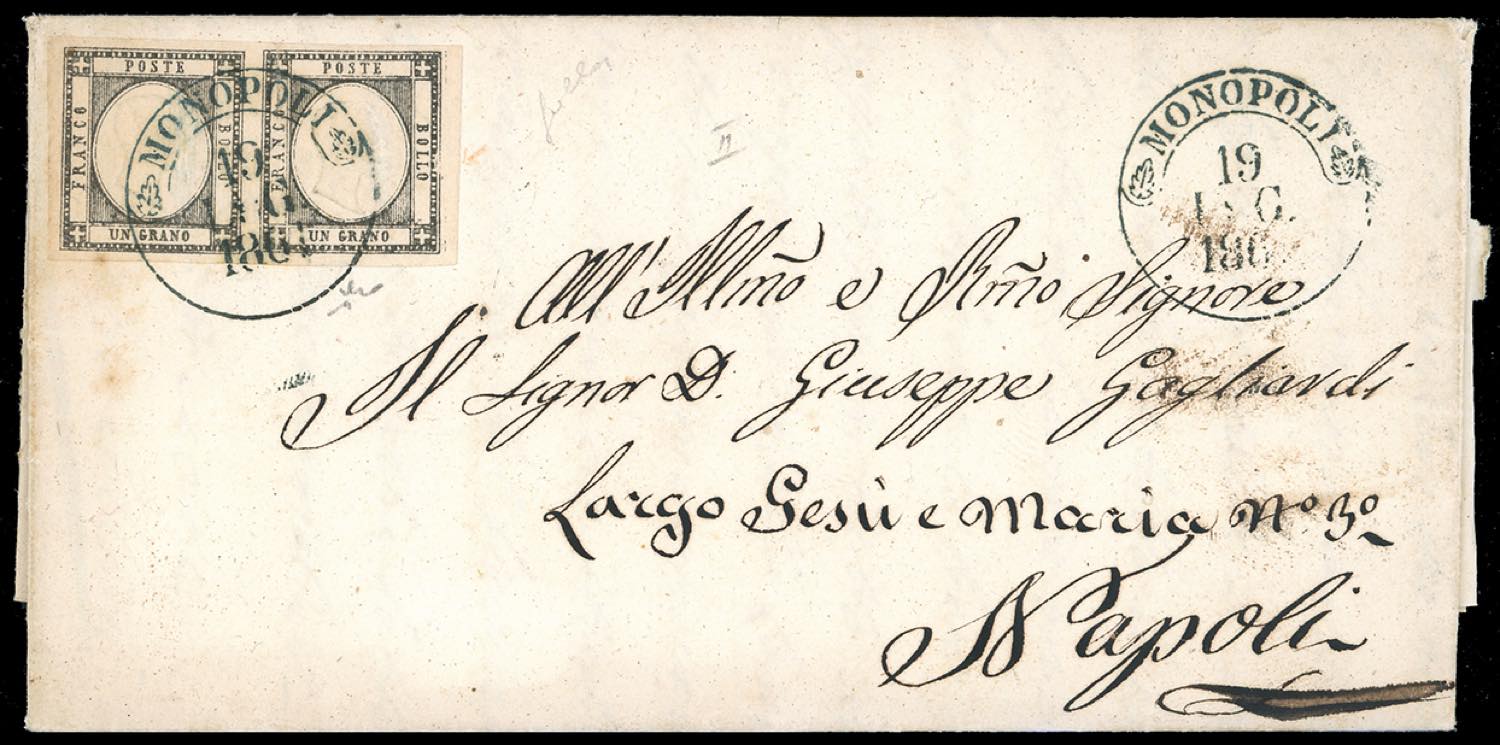 POSTE
FRANCO
BOLLO
UN GRANO
POSTE
FRANCO
BOLLO
UN GRANO
MONOPOLI
19
LUG.
1861
MONOPOLI
19
LUG.
186
All' Illm̃o e Rm̃o Signore
Il Signor D. Giuseppe Gagliardi
Largo Gesù e Maria Nº 3º
Napoli